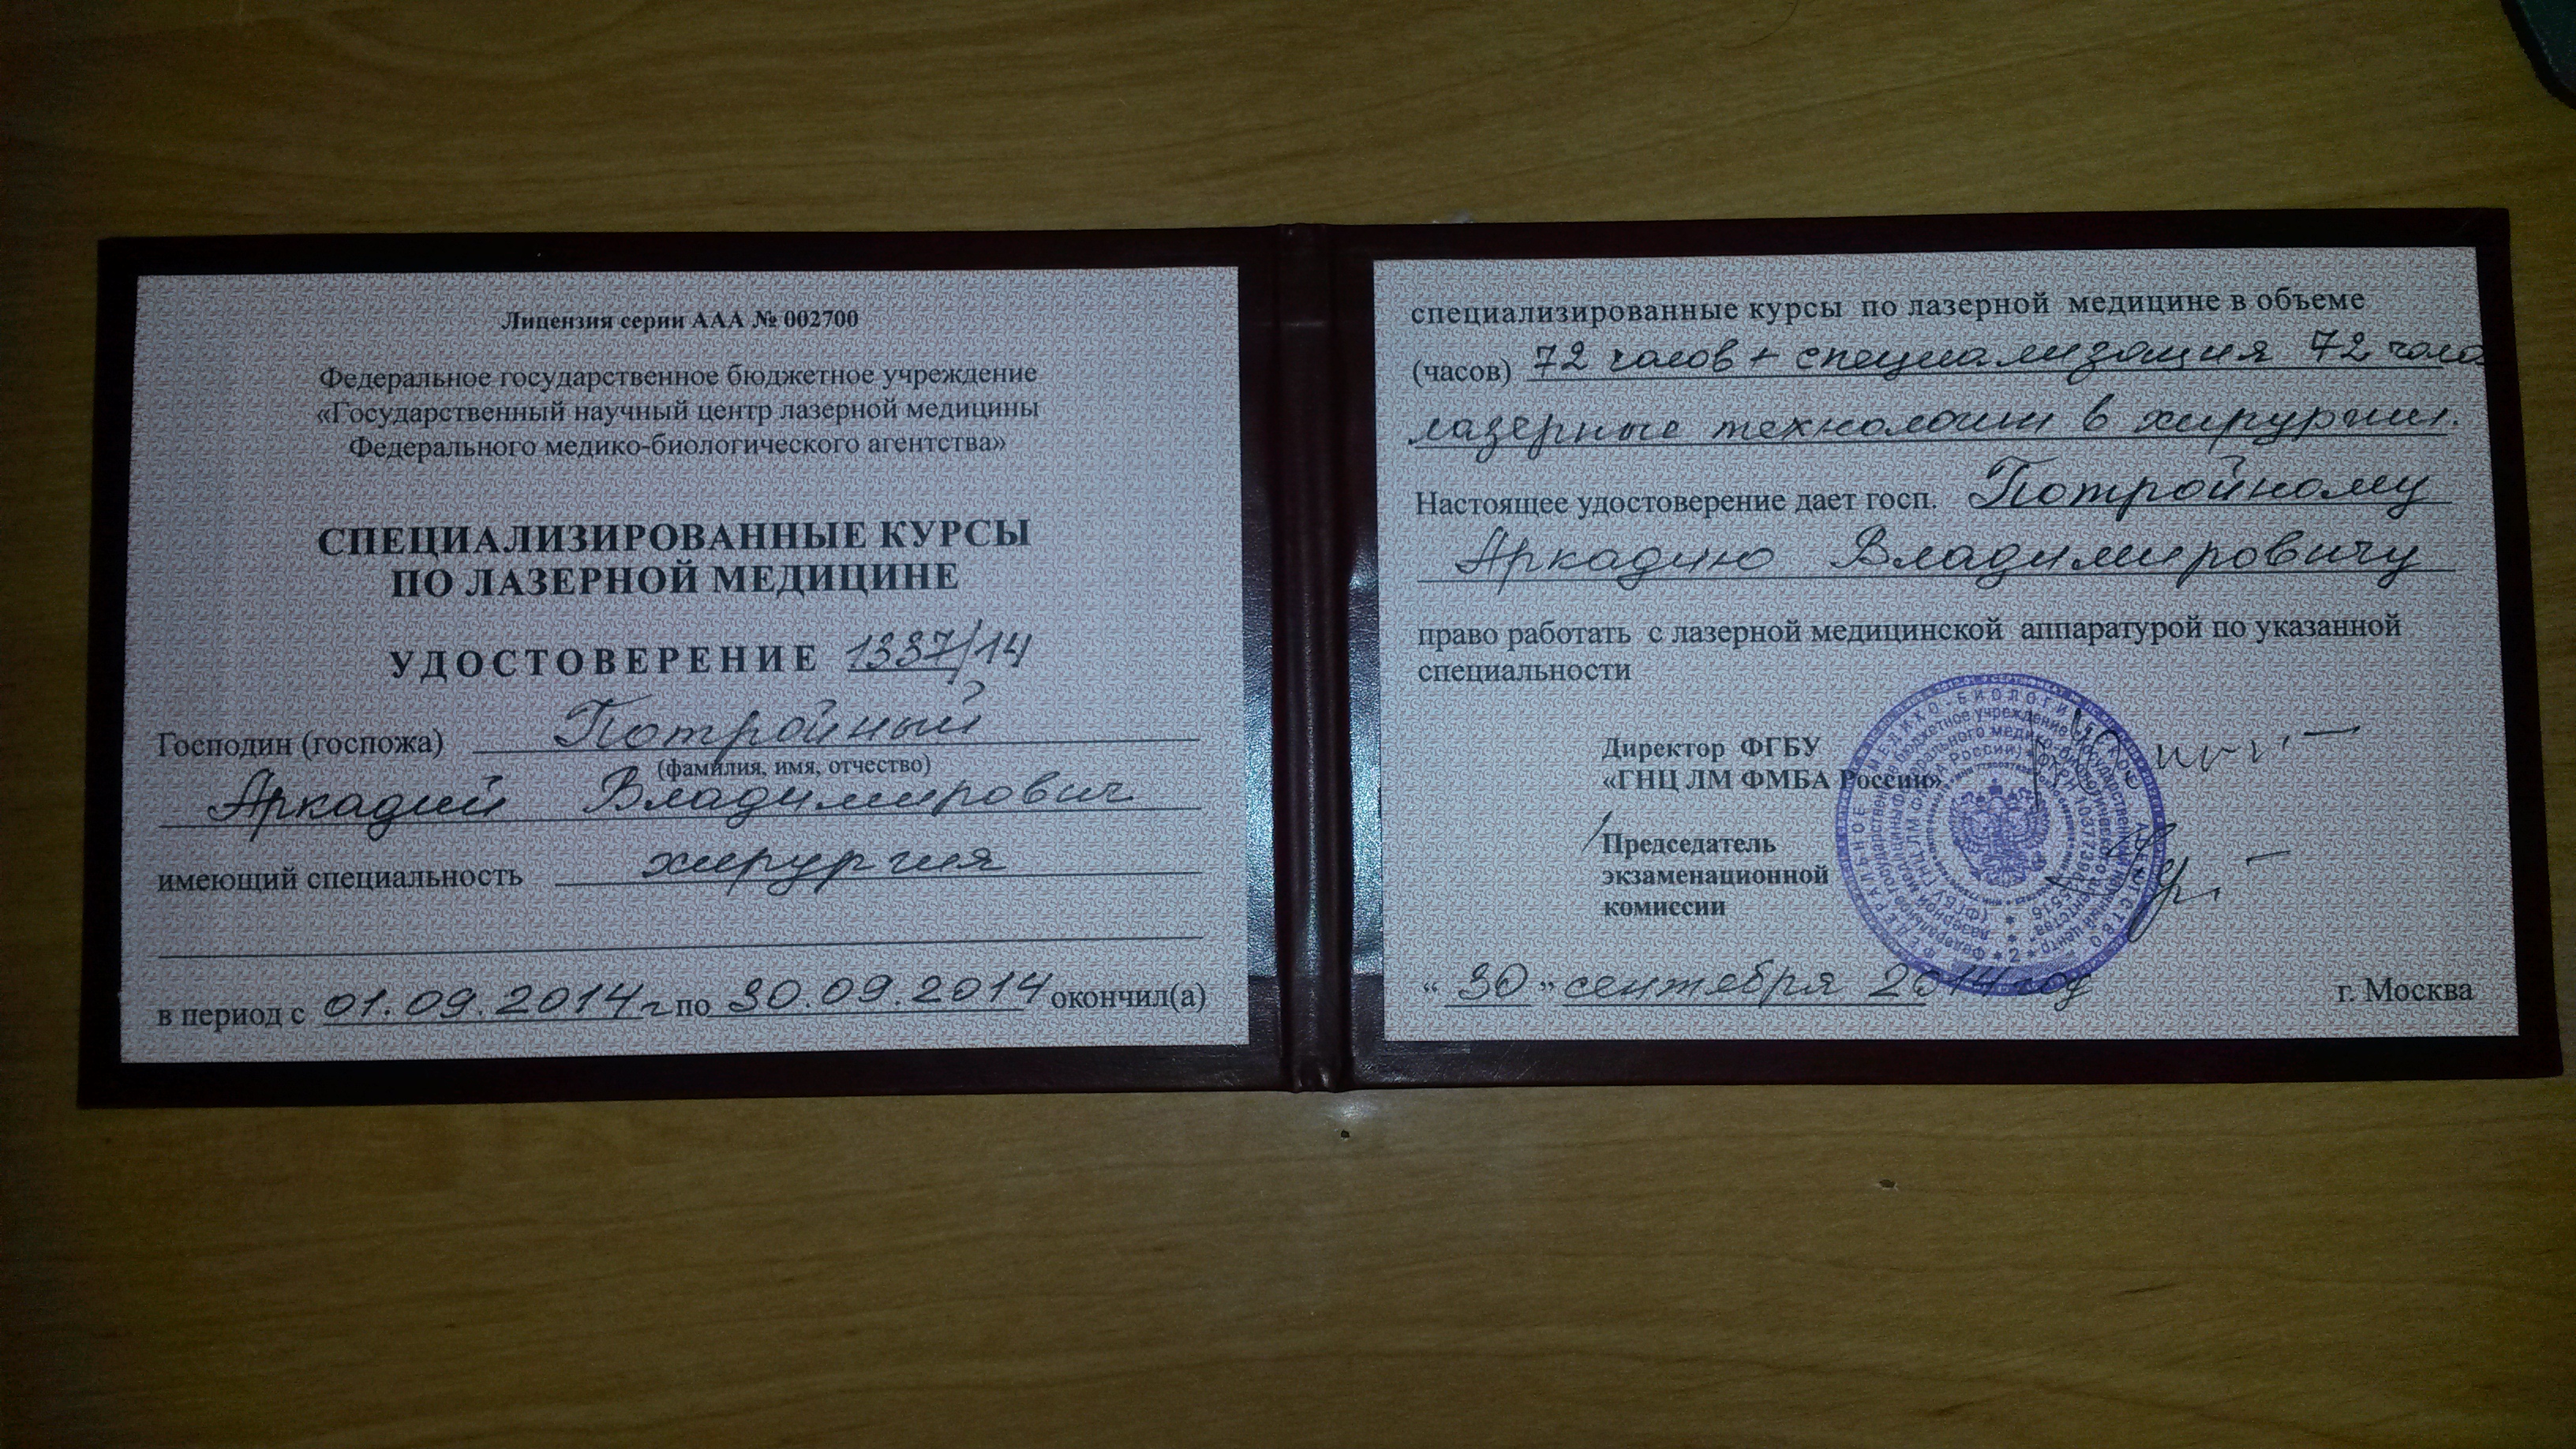 Лицензия серии ААА № 002700
Федеральное государственное бюджетное учреждение
«Государственный научный центр лазерной медицины
Федерального медико-биологического агентства»
СПЕЦИАЛИЗИРОВАННЫЕ КУРСЫ
ПО ЛАЗЕРНОЙ МЕДИЦИНЕ
УДОСТОВЕРЕНИЕ 1337/14
Господин (госпожа) Потройный
(фамилия, имя, отчество)
Аркадий Владимирович
имеющий специальность хирургия
в период с 01.09.2014г по 30.09.2014 окончил(а)
специализированные курсы по лазерной медицине в объеме
(часов) 72 часов + специализация 72 часа
лазерные технологии в хирургии.
Настоящее удостоверение дает госп. Потройному
Аркадию Владимировичу
право работать с лазерной медицинской аппаратурой по указанной
специальности
Директор ФГБУ
«ГНЦ ЛМ ФМБА России»
Председатель
экзаменационной
комиссии
"30" сентября 2014 год
г. Москва